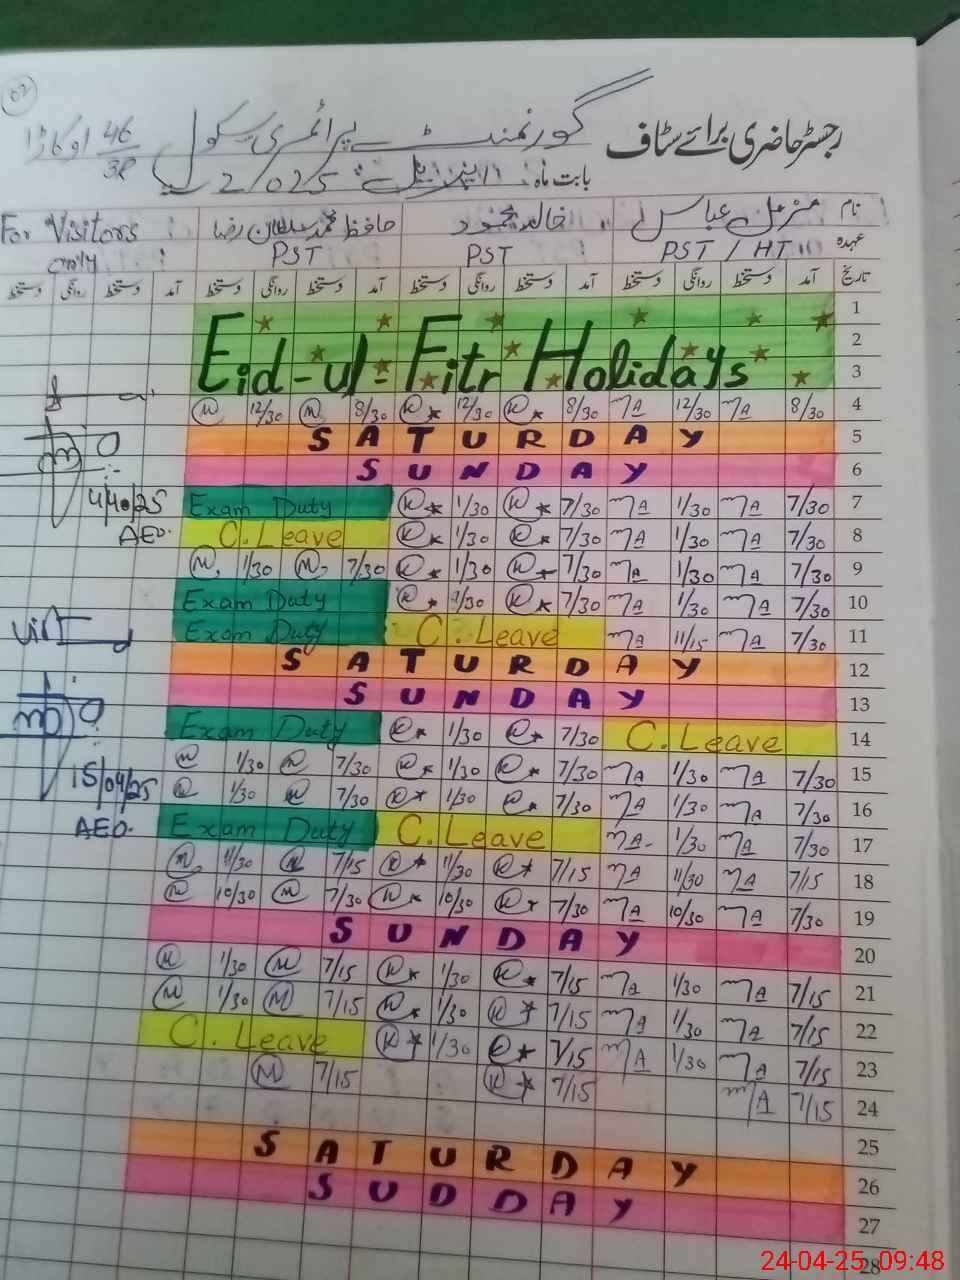 02
رجسٹر حاضری برائے سٹاف گورنمنٹ پرائمری سکول 46/3R اوکاڑا
بابت ماہ: اپریل 2025
نام مزمل عباس خالد محمود حافظ محمد سلطان رضا For Visitors
عہدہ PST / HT PST PST only
تاریخ آمد دستخط روانگی دستخط آمد دستخط روانگی دستخط آمد دستخط روانگی دستخط آمد دستخط روانگی دستخط
1
Eid-ul-Fitr Holidays 2
3
12/30 8/30 12/30 8/30 MA 12/30 MA 8/30 4
SATURDAY 5
SUNDAY 6
Exam Duty K 1/30 K 7/30 MA 1/30 MA 7/30 7
4/40/25
C. Leave K 1/30 K 7/30 MA 1/30 MA 7/30 8
AEO.
M 1/30 M 7/30 K 1/30 K 7/30 MA 1/30 MA 7/30 9
Exam Duty K 1/30 K 7/30 MA 1/30 MA 7/30 10
Exam Duty C. Leave MA 11/15 MA 7/30 11
SATURDAY 12
SUNDAY 13
Exam Duty K 1/30 K 7/30 C. Leave 14
M 1/30 M 7/30 K 1/30 K 7/30 MA 1/30 MA 7/30 15
15/04/25
M 1/30 M 7/30 K 1/30 K 7/30 MA 1/30 MA 7/30 16
AEO.
Exam Duty C. Leave MA 1/30 MA 7/30 17
M 11/30 M 7/15 K 11/30 K 7/15 MA 11/30 MA 7/15 18
M 10/30 M 7/30 K 10/30 K 7/30 MA 10/30 MA 7/30 19
SUNDAY 20
M 1/30 M 7/15 K 1/30 K 7/15 MA 1/30 MA 7/15 21
M 1/30 M 7/15 K 1/30 K 7/15 MA 1/30 MA 7/15 22
C. Leave K 1/30 K 7/15 MA 1/30 MA 7/15 23
M 7/15 K 7/15 MA 7/15 24
25
SATURDAY 26
SUDDAY 27
28
24-04-25 09:48